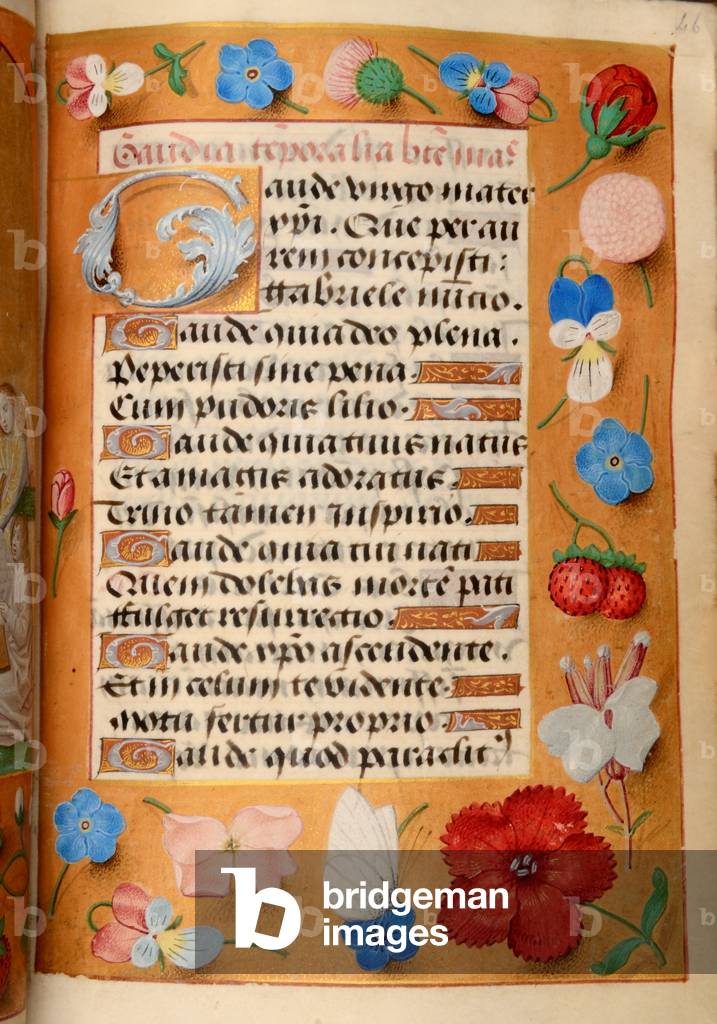 46
Gaudia tēporalia btē mas
Gaude virgo mater
xpi. Que per au
rem concepisti:
Gabriele nūcio.
Gaude quia deo plena.
Peperisti sine pena.
Cum pudoris lilio.
Gaude quia tuus natus
Et a magis adoratus.
Trino tamen in spirio.
Gaude quia tui nati
Quem dolebas mortē pati
Fulget resurrectio.
Gaude xpō ascendente.
Et in celum te vidente.
Motu fertur proprio.
Gaude quod paraclit⁹
b bridgeman
images